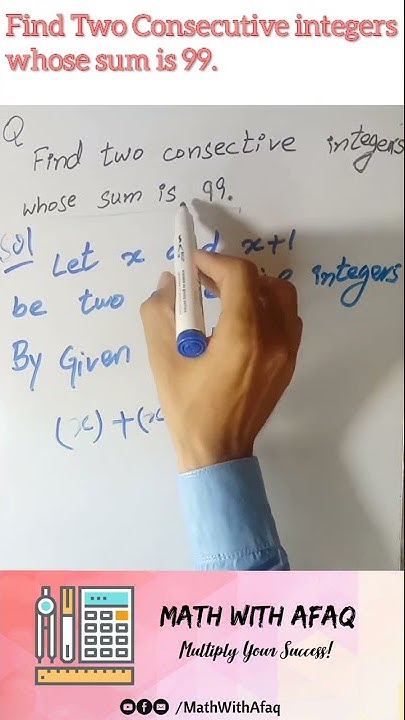 Find Two Consecutive integers
whose sum is 99.
Q
Find two consective integers
whose sum is 99.
Sol Let x x+1
be two integers
By Given
(x)+(x
MATH WITH AFAQ
Multiply Your Success!
/MathWithAfaq